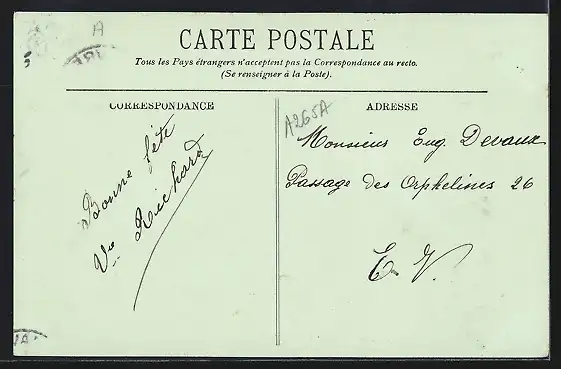 A
CARTE POSTALE
Tous les Pays étrangers n'acceptent pas la Correspondance au recto.
(Se renseigner à la Poste).
CORRESPONDANCE
ADRESSE
A265A
Bonne fête
Vve Richard
Monsieur Eug. Devaux
Passage des Orphelines 26
E. V.